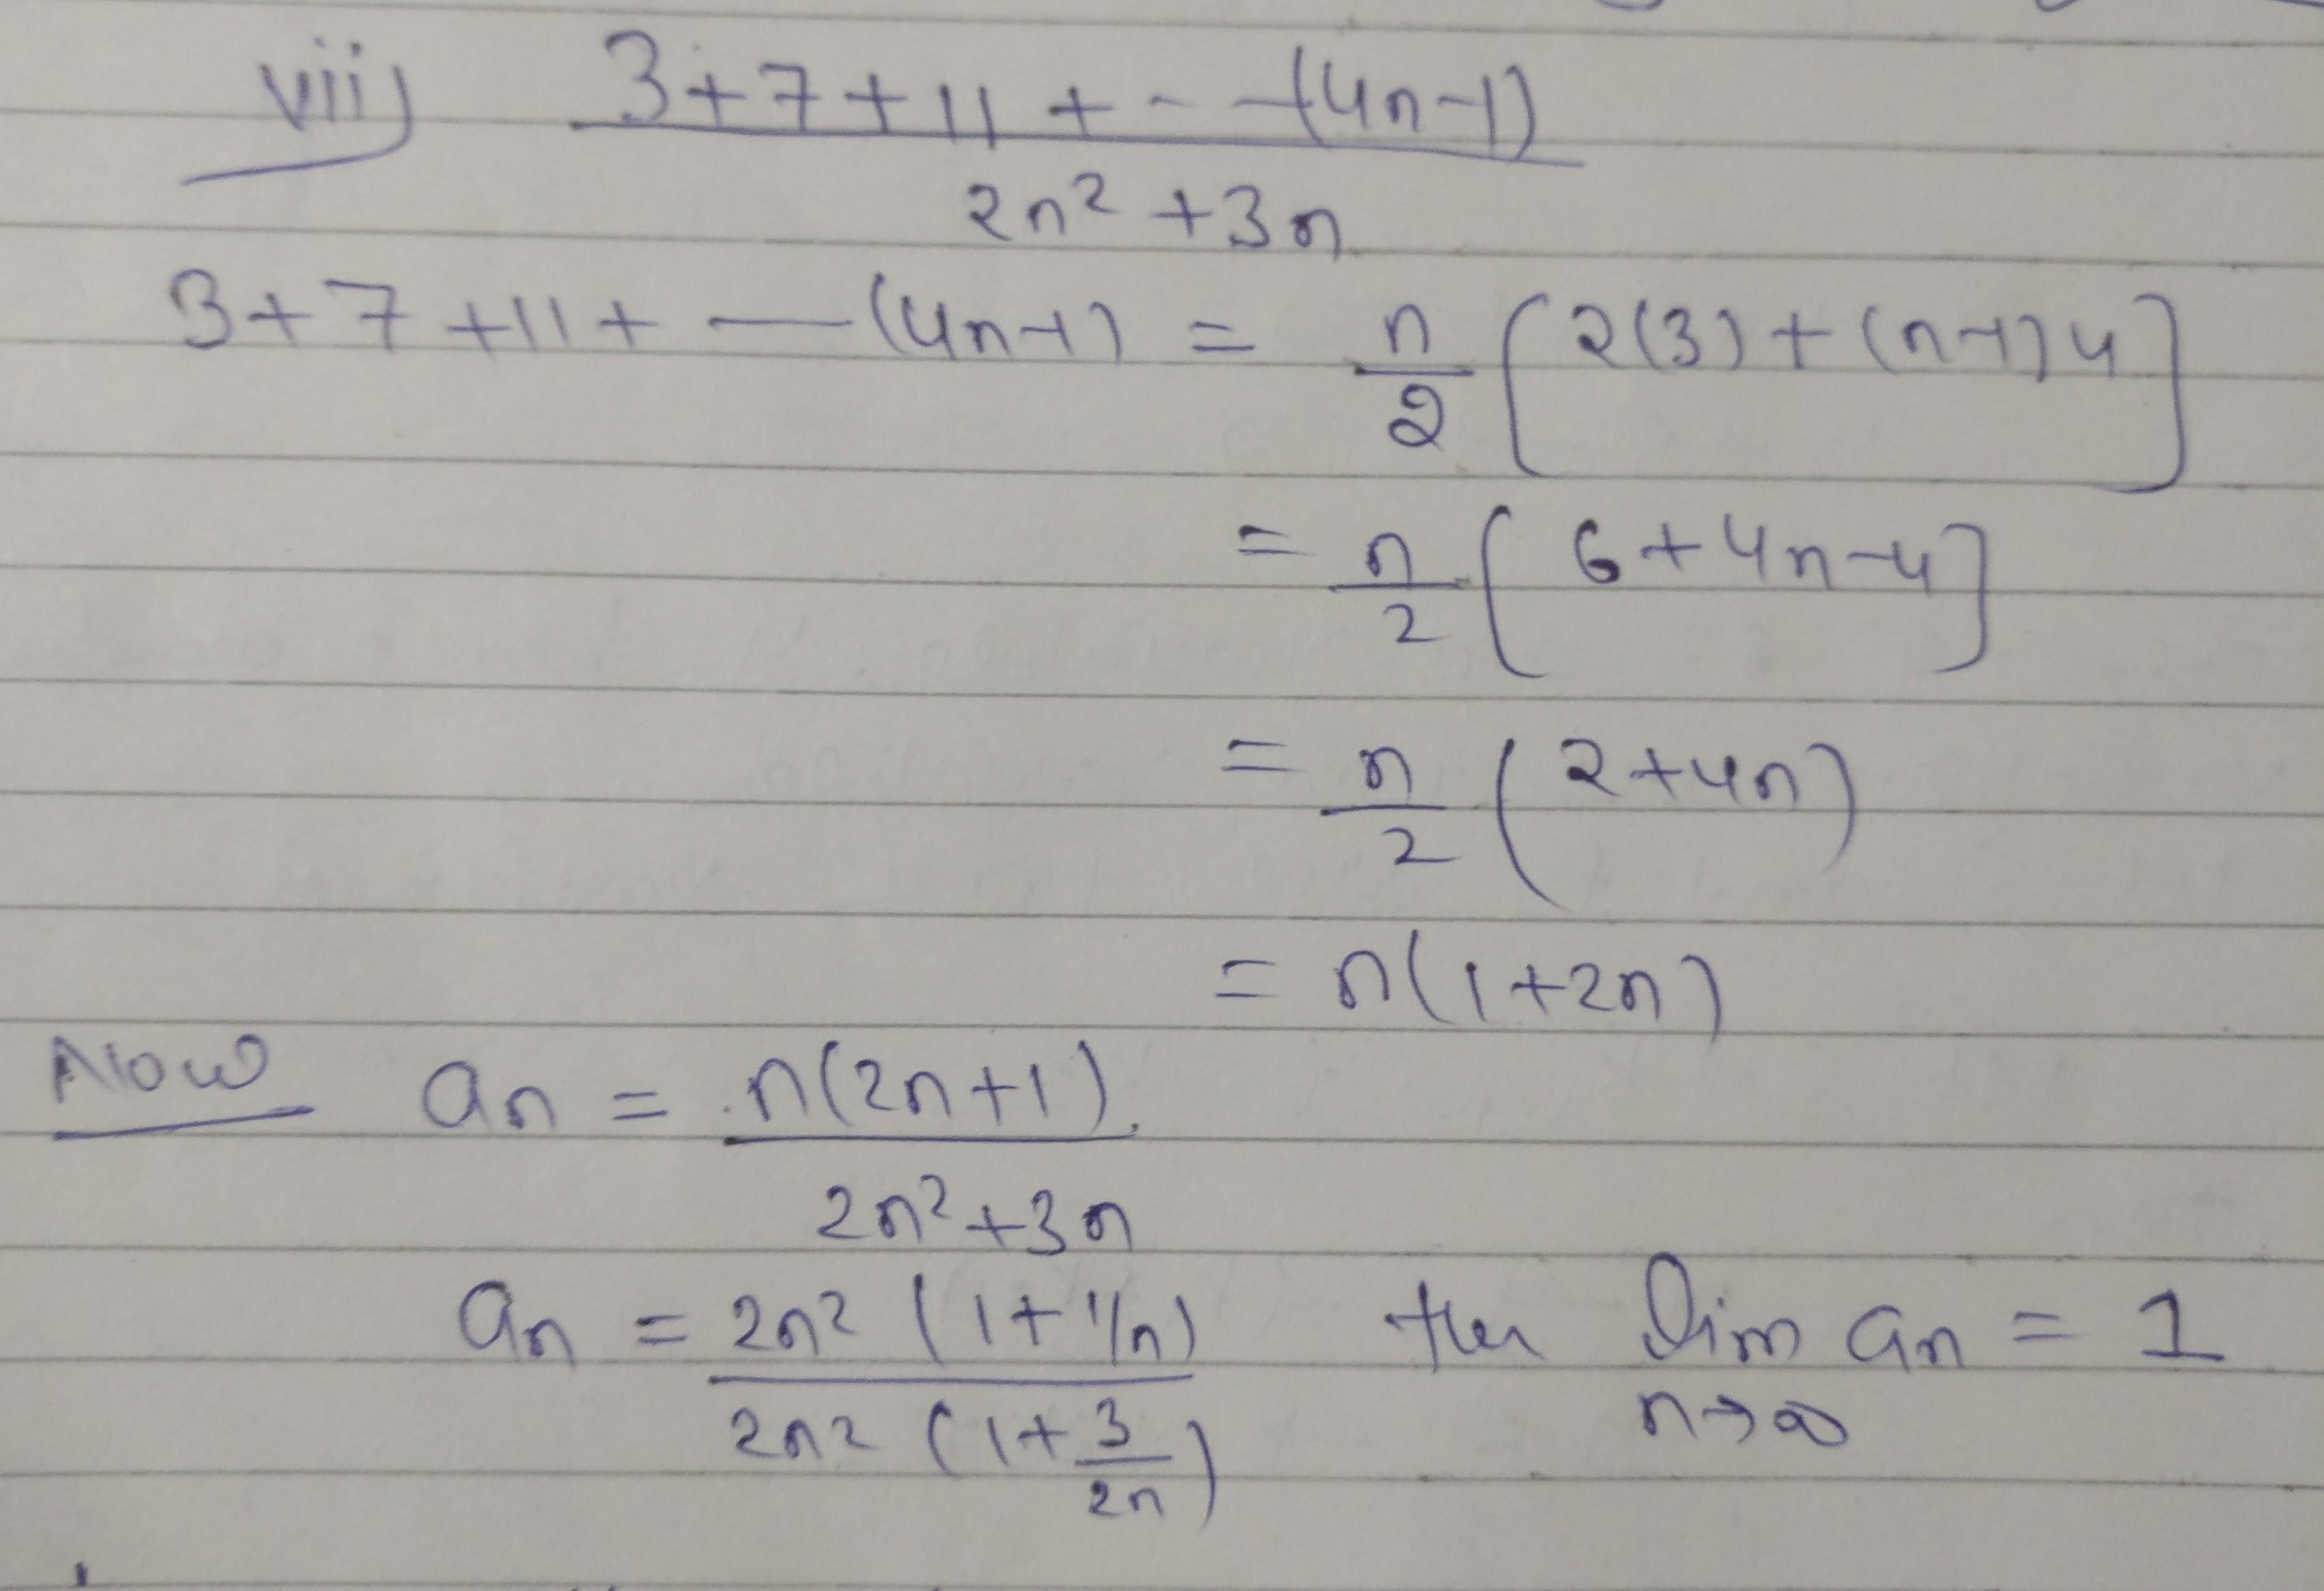 vii) 3+7+11+--+(4n-1) / 2n²+3n
3+7+11+—(4n-1) = n/2 [2(3)+(n-1)4]
= n/2 [6+4n-4]
= n/2 (2+4n)
= n(1+2n)
Now an = n(2n+1) / 2n²+3n
an = 2n² (1+1/n) / 2n² (1+3/2n) then lim n→∞ an = 1